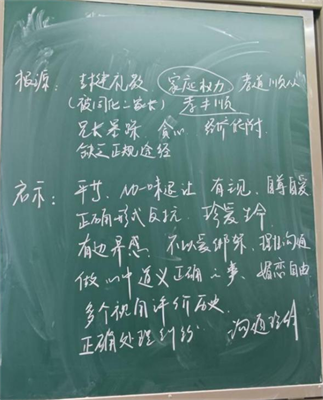 根源：封建礼教 家庭权力 孝道顺从
(被同化二家长) 孝并顺
兄长暴躁、贪心 经济依附
缺乏正规途径
启示：平等、勿一味退让 有主见、自尊自爱
正确形式反抗、珍爱生命
有边界感、不以爱绑架、理性沟通
做心中道义正确之事、婚恋自由
多个视角评价历史、
正确处理纠纷 沟通